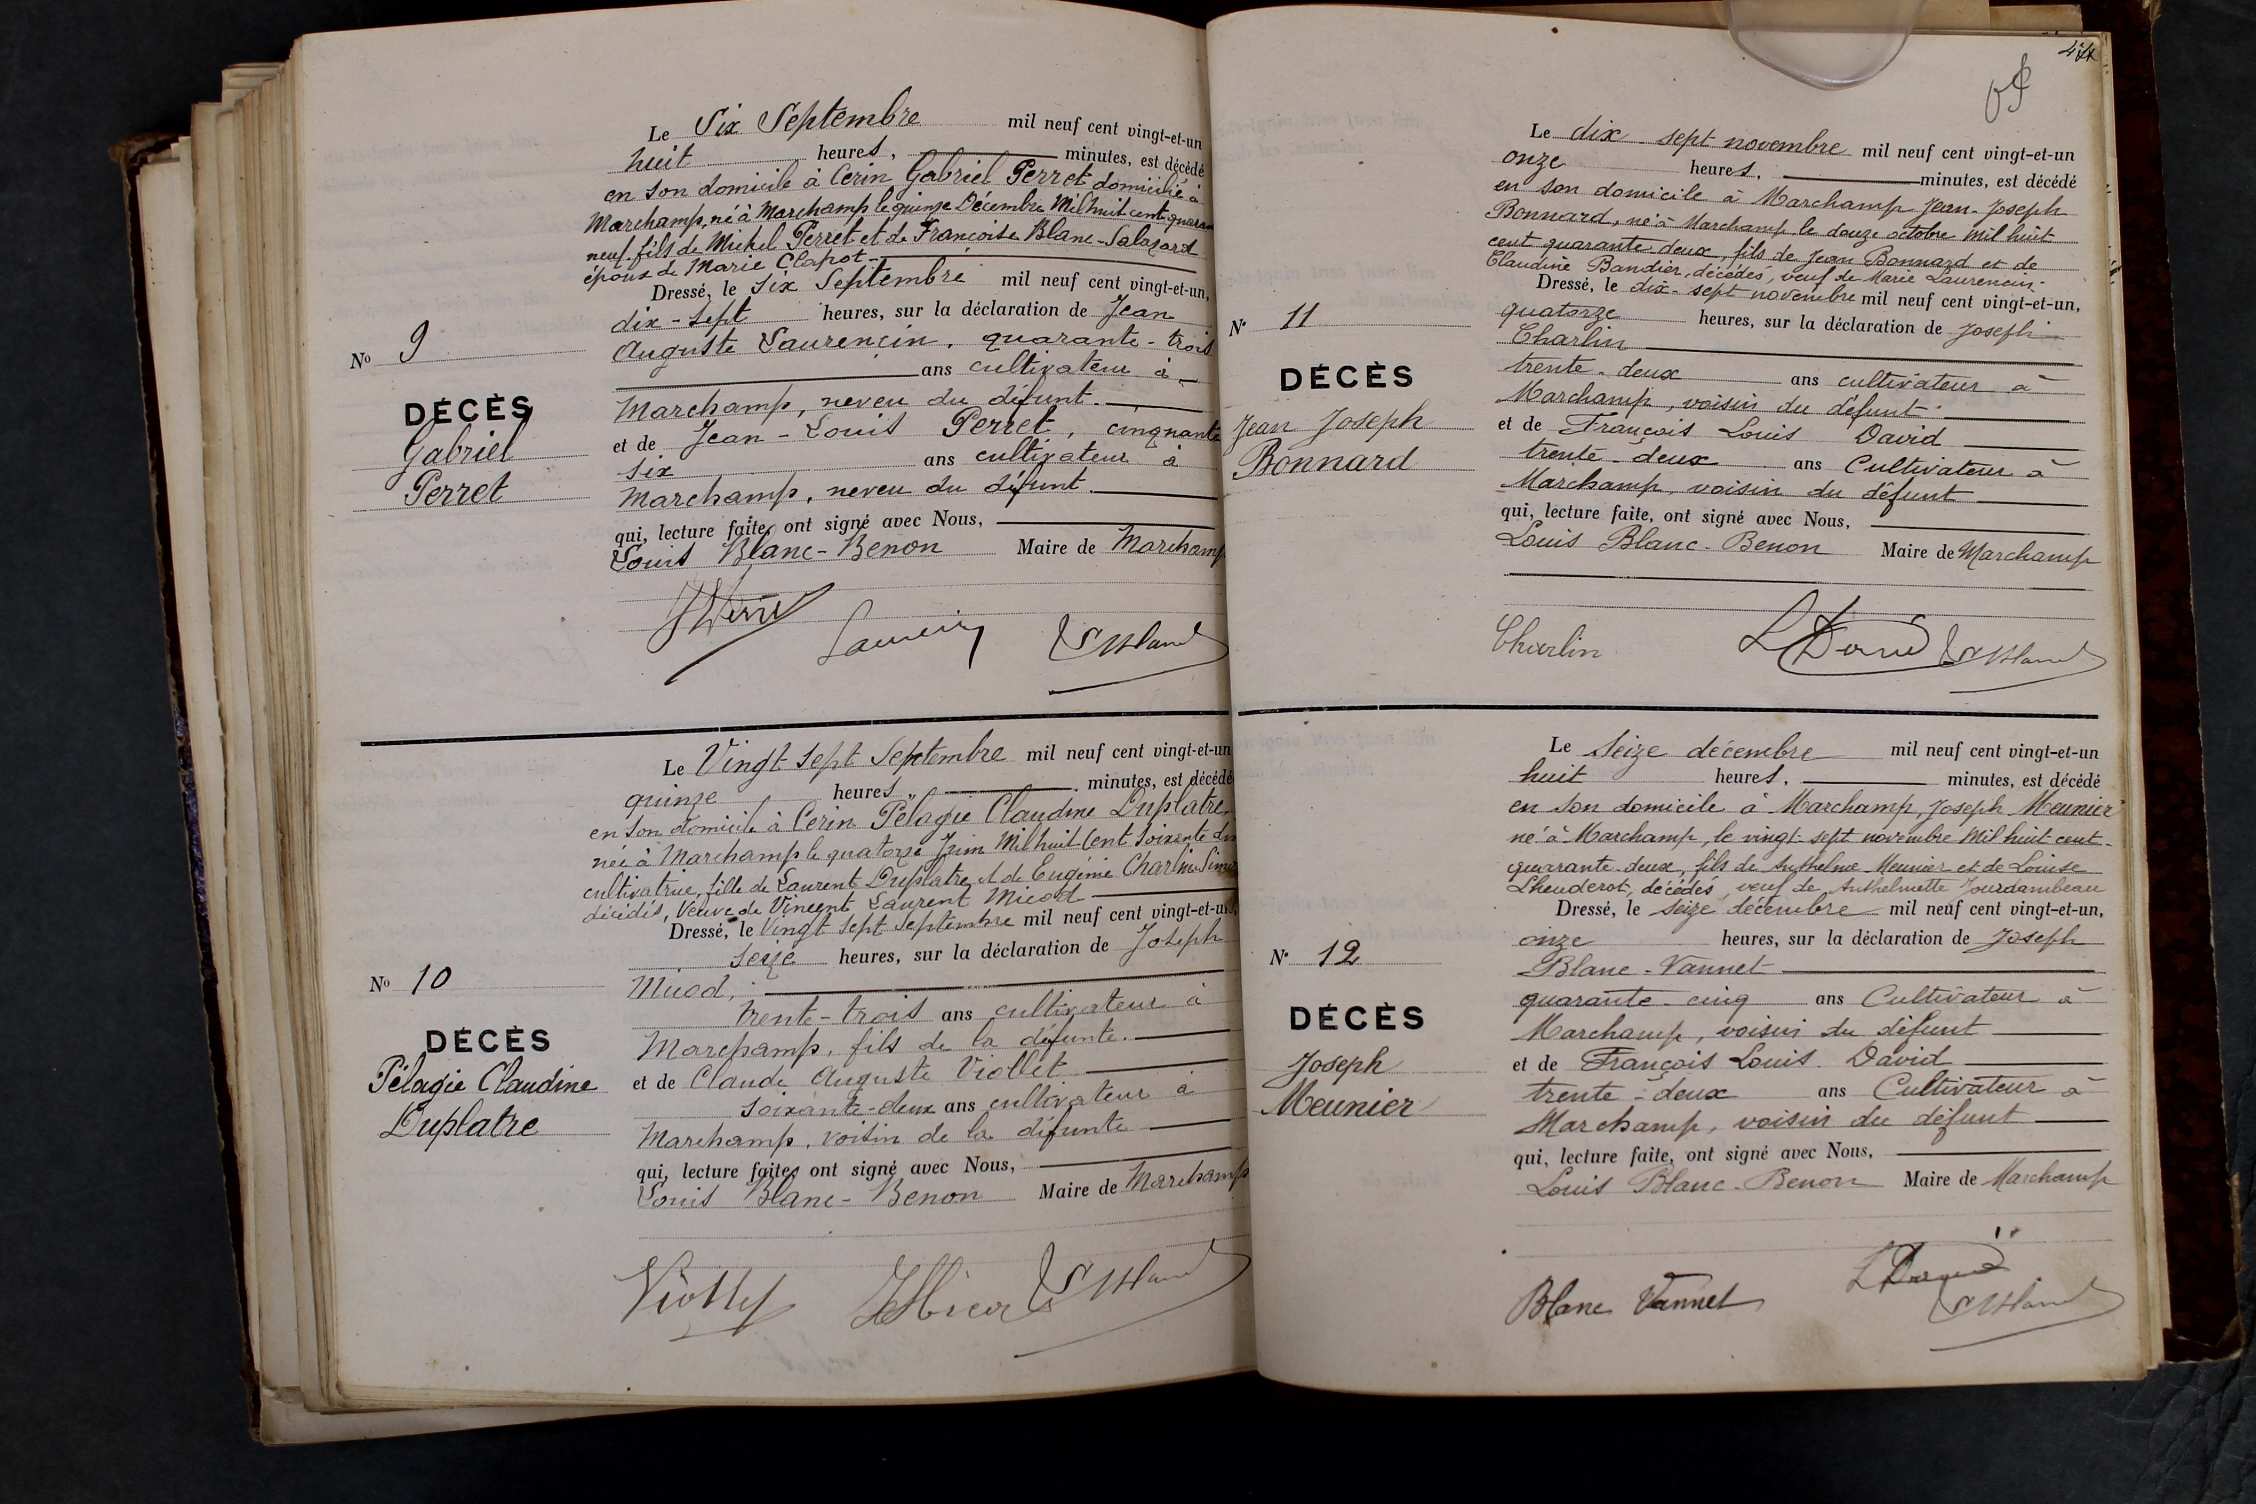 Le Six Septembre mil neuf cent vingt-et-un
huit heures, minutes, est décédé
en son domicile à Cerin Gabriel Perret domicilié à
Marchamp, né à Marchamp le quinze Décembre Mil huit cent quaran
neuf, fils de Michel Perret et de Françoise Blanc-Salazard
époux de Marie Clapot
Dressé, le Six Septembre mil neuf cent vingt-et-un,
dix-sept heures, sur la déclaration de Jean
Auguste Laurencin, quarante-trois
ans cultivateur à
Marchamp, neveu du défunt.
et de Jean-Louis Perret, cinquante
six ans cultivateur à
Marchamp, neveu du défunt.
qui, lecture faite, ont signé avec Nous,
Louis Blanc-Benon Maire de Marchamp
No 9
DÉCÈS
Gabriel
Perret
Le Vingt sept Septembre mil neuf cent vingt-et-un
quinze heures, minutes, est décédé
en son domicile à Cerin Pélagie Claudine Duplatre
née à Marchamp le quatorze Juin Mil huit Cent Soixante
cultivatrice, fille de Laurent Duplatre et de Eugénie Charlin
décédés, Veuve de Vincent Laurent Micod
Dressé, le Vingt sept Septembre mil neuf cent vingt-et-un,
seize heures, sur la déclaration de Joseph
Micod,
trente-trois ans cultivateur à
Marchamp, fils de la défunte.
et de Claude Auguste Viollet
soixante-deux ans cultivateur à
Marchamp, voisin de la défunte
qui, lecture faite, ont signé avec Nous,
Louis Blanc-Benon Maire de Marchamp
No 10
DÉCÈS
Pélagie Claudine
Duplatre
Le dix sept novembre mil neuf cent vingt-et-un
onze heures, minutes, est décédé
en son domicile à Marchamp Jean-Joseph
Bonnard, né à Marchamp le douze octobre mil huit
cent quarante deux, fils de Jean Bonnard et de
Claudine Bandier, décédés, veuf de Marie Laurencin.
Dressé, le dix-sept novembre mil neuf cent vingt-et-un,
quatorze heures, sur la déclaration de Joseph
Charlin
trente-deux ans cultivateur à
Marchamp, voisin du défunt.
et de François Louis David
trente-deux ans Cultivateur à
Marchamp, voisin du défunt
qui, lecture faite, ont signé avec Nous,
Louis Blanc-Benon Maire de Marchamp
Charlin
N° 11
DÉCÈS
Jean Joseph
Bonnard
Le Seize décembre mil neuf cent vingt-et-un
huit heures, minutes, est décédé
en son domicile à Marchamp, Joseph Meunier
né à Marchamp, le vingt-sept novembre mil huit cent
quarante-deux, fils de Anthelme Meunier et de Louise
Lheuderot, décédés, veuf de Anthelmette Jourdambeau
Dressé, le seize décembre mil neuf cent vingt-et-un,
onze heures, sur la déclaration de Joseph
Blanc-Vannet
quarante-cinq ans Cultivateur à
Marchamp, voisin du défunt
et de François Louis David
trente-deux ans Cultivateur à
Marchamp, voisin du défunt
qui, lecture faite, ont signé avec Nous,
Louis Blanc-Benon Maire de Marchamp
Blanc Vannet
N° 12
DÉCÈS
Joseph
Meunier